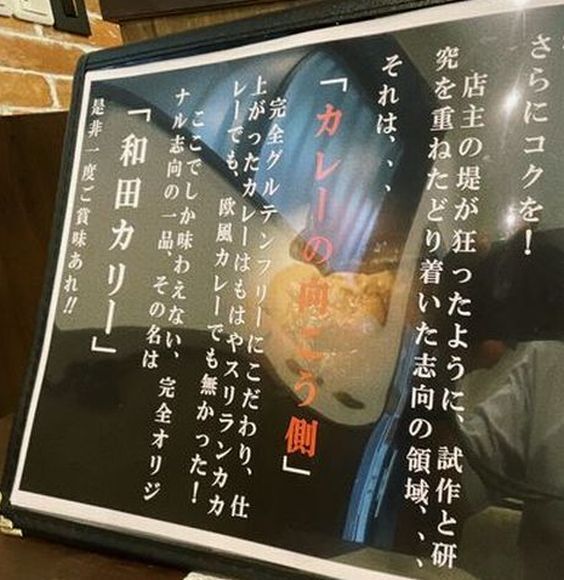 さらにコクを!
店主の堤が狂ったように、試作と研
究を重ねたどり着いた志向の領域、、、
それは、、、
「カレーの向こう側」
完全グルテンフリーにこだわり、仕
上がったカレーはもはやスリランカカ
レーでも、欧風カレーでも無かった!
ここでしか味わえない、完全オリジ
ナル志向の一品、その名は
「和田カリー」
是非一度ご賞味あれ!!